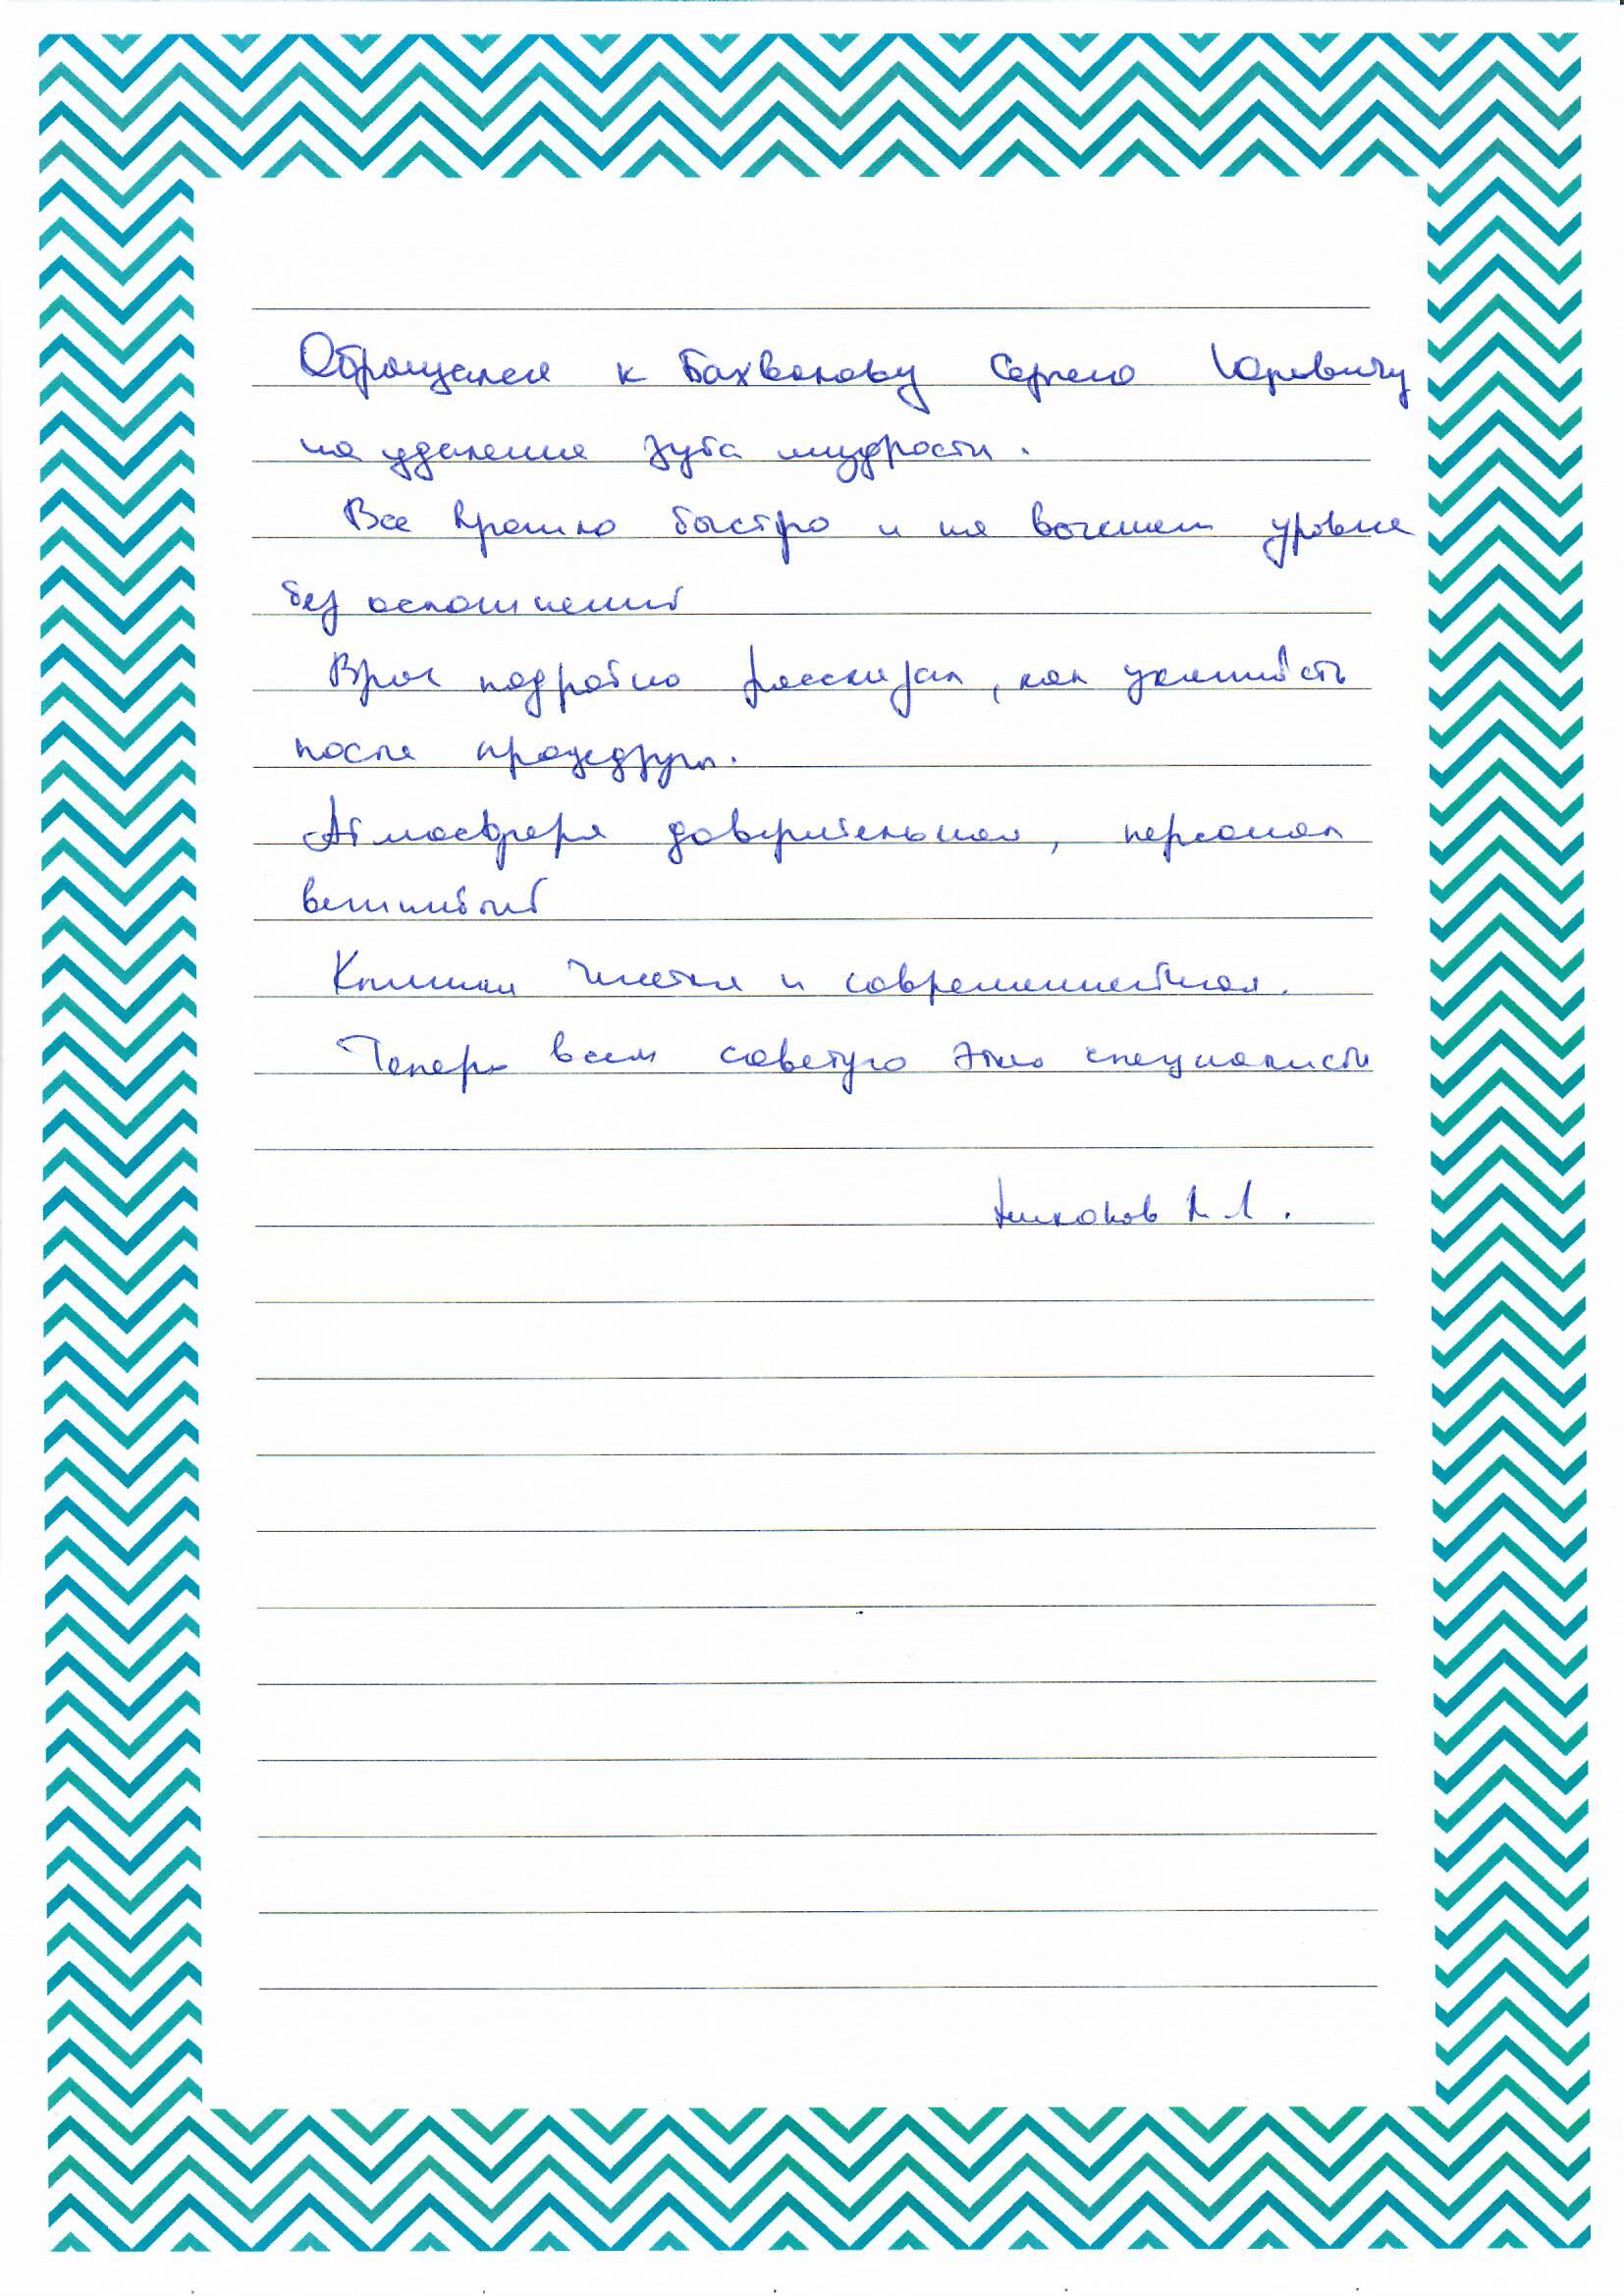 Обращался к Бахвалову Сергею Юрьевичу
на удаление зуба мудрости.
Все прошло быстро и на высшем уровне
без осложнений
Врач подробно рассказал, как ухаживать
после процедуры.
Атмосфера доверительная, персонал
вежливый
Клиника чистая и современная.
Теперь всем советую этого специалиста